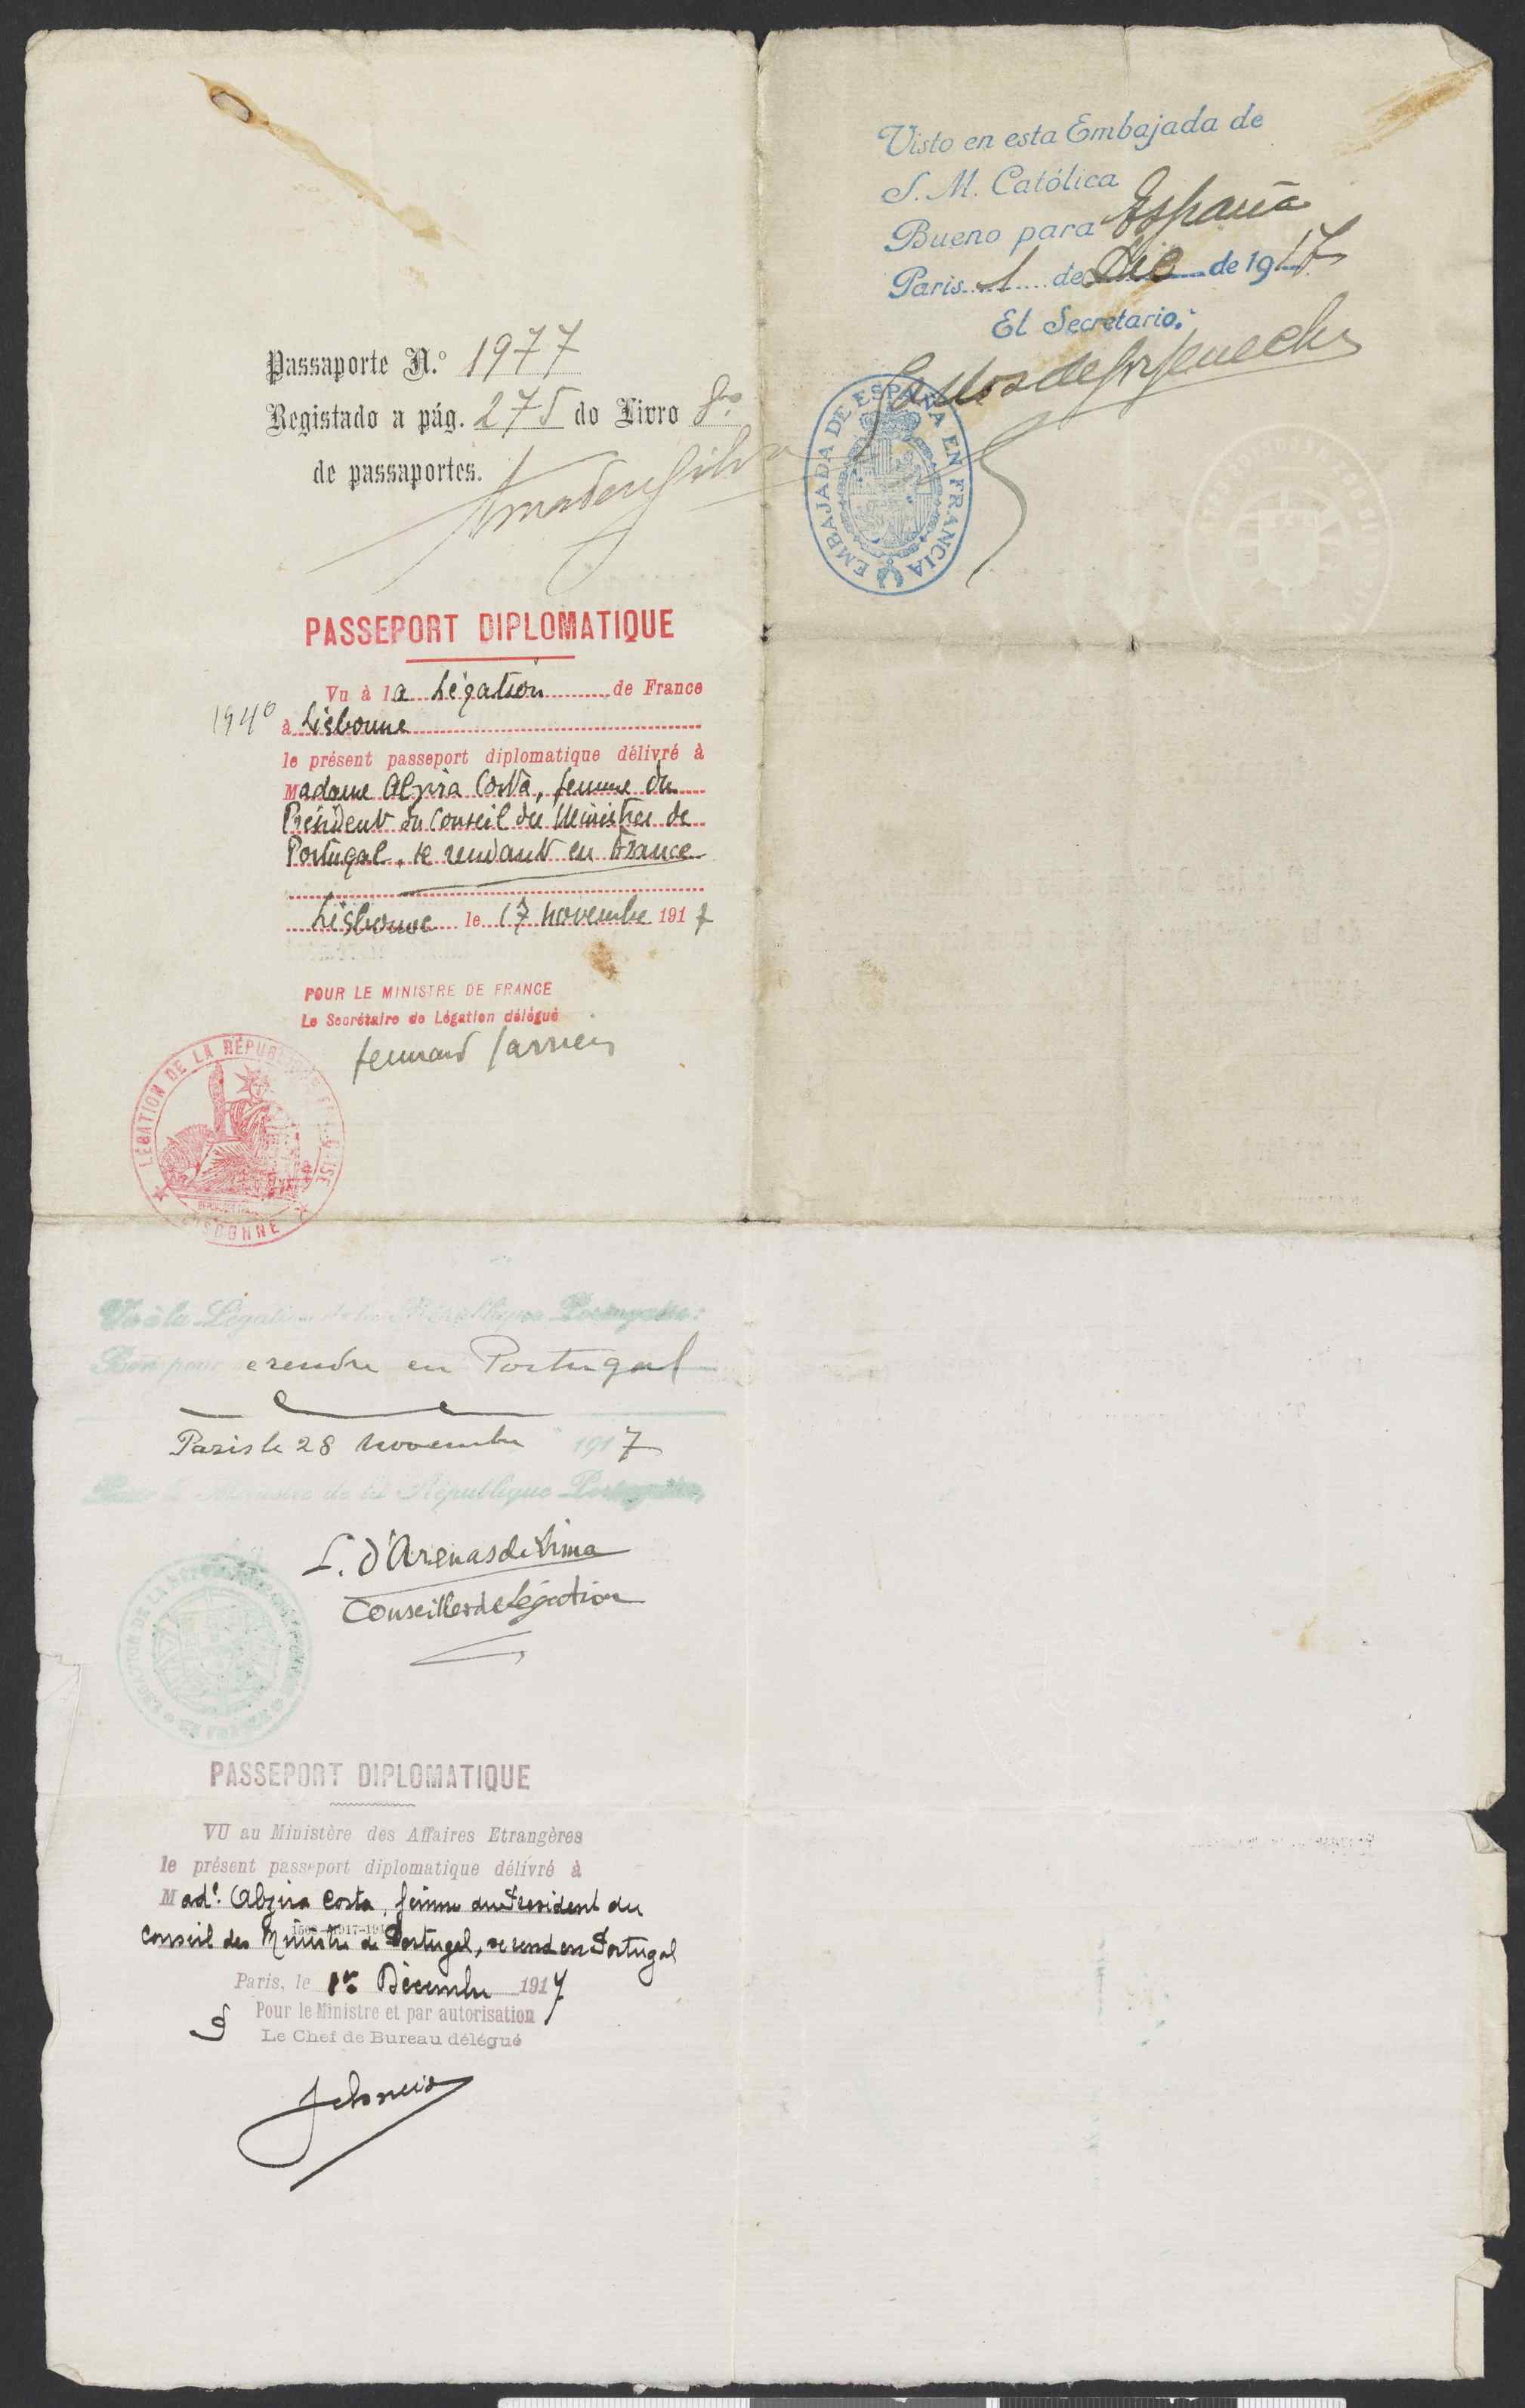 Passaporte N.º 1977
Registado a pág. 275 do Livro
de passaportes.
Amadeu Silva
PASSEPORT DIPLOMATIQUE
Vu à la Légation de France
1940 à Lisbonne
le présent passeport diplomatique délivré à
Madame Alzira Costa, femme du
Président du Conseil des Ministres de
Portugal, se rendant en France
Lisbonne le 17 novembre 1917
POUR LE MINISTRE DE FRANCE
Le Secrétaire de Légation délégué
LÉGATION DE LA RÉPUBLIQUE FRANÇAISE
LISBONNE
Vu à la Légation de la République Portugaise:
Bon pour se rendre en Portugal
Paris le 28 novembre 1917
Pour le Ministre de la République Portugaise,
L. d'Arenas de Lima
Conseiller de Légation
PASSEPORT DIPLOMATIQUE
VU au Ministère des Affaires Etrangères
le présent passeport diplomatique délivré à
Made. Alzira Costa, femme du President du
Conseil des Ministres de Portugal, se rend en Portugal
Paris, le 1er Décembre 1917
Pour le Ministre et par autorisation
Le Chef de Bureau délégué
Visto en esta Embajada de
S. M. Católica
Bueno para España
Paris 1 de Dic de 1917
El Secretario.
EMBAJADA DE ESPAÑA EN FRANCIA